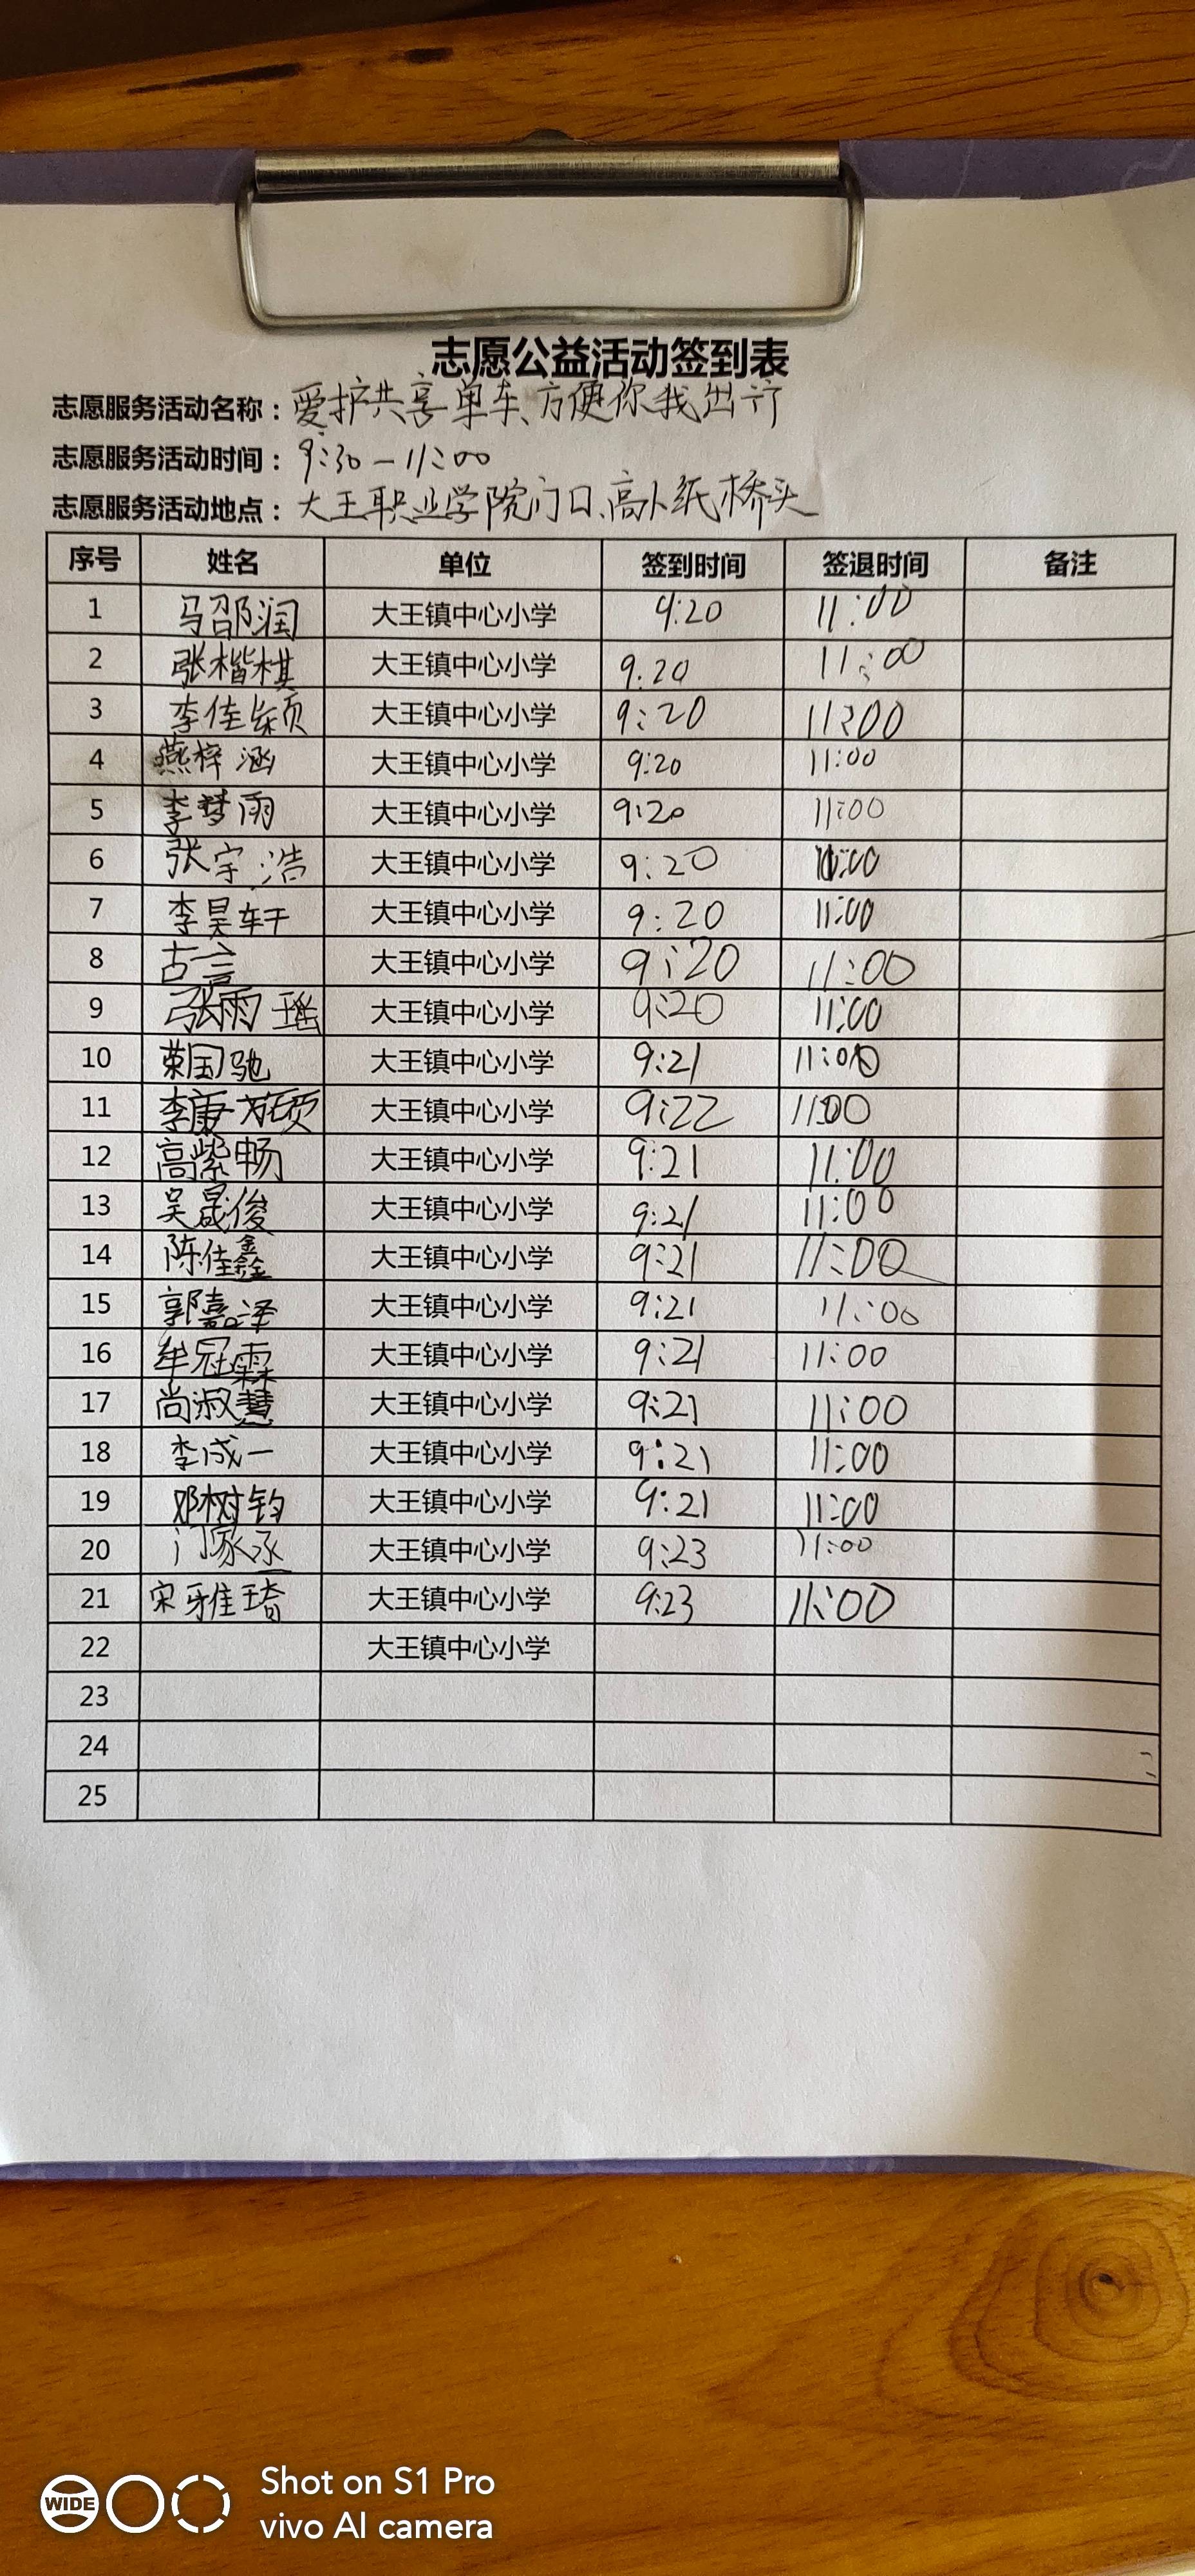 志愿公益活动签到表
志愿服务活动名称：爱护共享单车、方便你我出行
志愿服务活动时间：9:30-11:00
志愿服务活动地点：大王职业学院门口、高卜纸桥头
序号 姓名 单位 签到时间 签退时间 备注
1 马邵润 大王镇中心小学 9:20 11:00
2 张楷棋 大王镇中心小学 9:20 11:00
3 李佳颖 大王镇中心小学 9:20 11:00
4 燕梓涵 大王镇中心小学 9:20 11:00
5 李梦雨 大王镇中心小学 9:20 11:00
6 张宇浩 大王镇中心小学 9:20 11:00
7 李昊轩 大王镇中心小学 9:20 11:00
8 古言 大王镇中心小学 9:20 11:00
9 张雨瑶 大王镇中心小学 9:20 11:00
10 荣国驰 大王镇中心小学 9:21 11:00
11 李康 大王镇中心小学 9:22 11:00
12 高紫畅 大王镇中心小学 9:21 11:00
13 吴晟俊 大王镇中心小学 9:21 11:00
14 陈佳鑫 大王镇中心小学 9:21 11:00
15 郭嘉泽 大王镇中心小学 9:21 11:00
16 牟冠霖 大王镇中心小学 9:21 11:00
17 尚淑慧 大王镇中心小学 9:21 11:00
18 李成一 大王镇中心小学 9:21 11:00
19 邓树钧 大王镇中心小学 9:21 11:00
20 门家丞 大王镇中心小学 9:23 11:00
21 宋雅琦 大王镇中心小学 9:23 11:00
22 大王镇中心小学
23
24
25
WIDE
Shot on S1 Pro
vivo AI camera